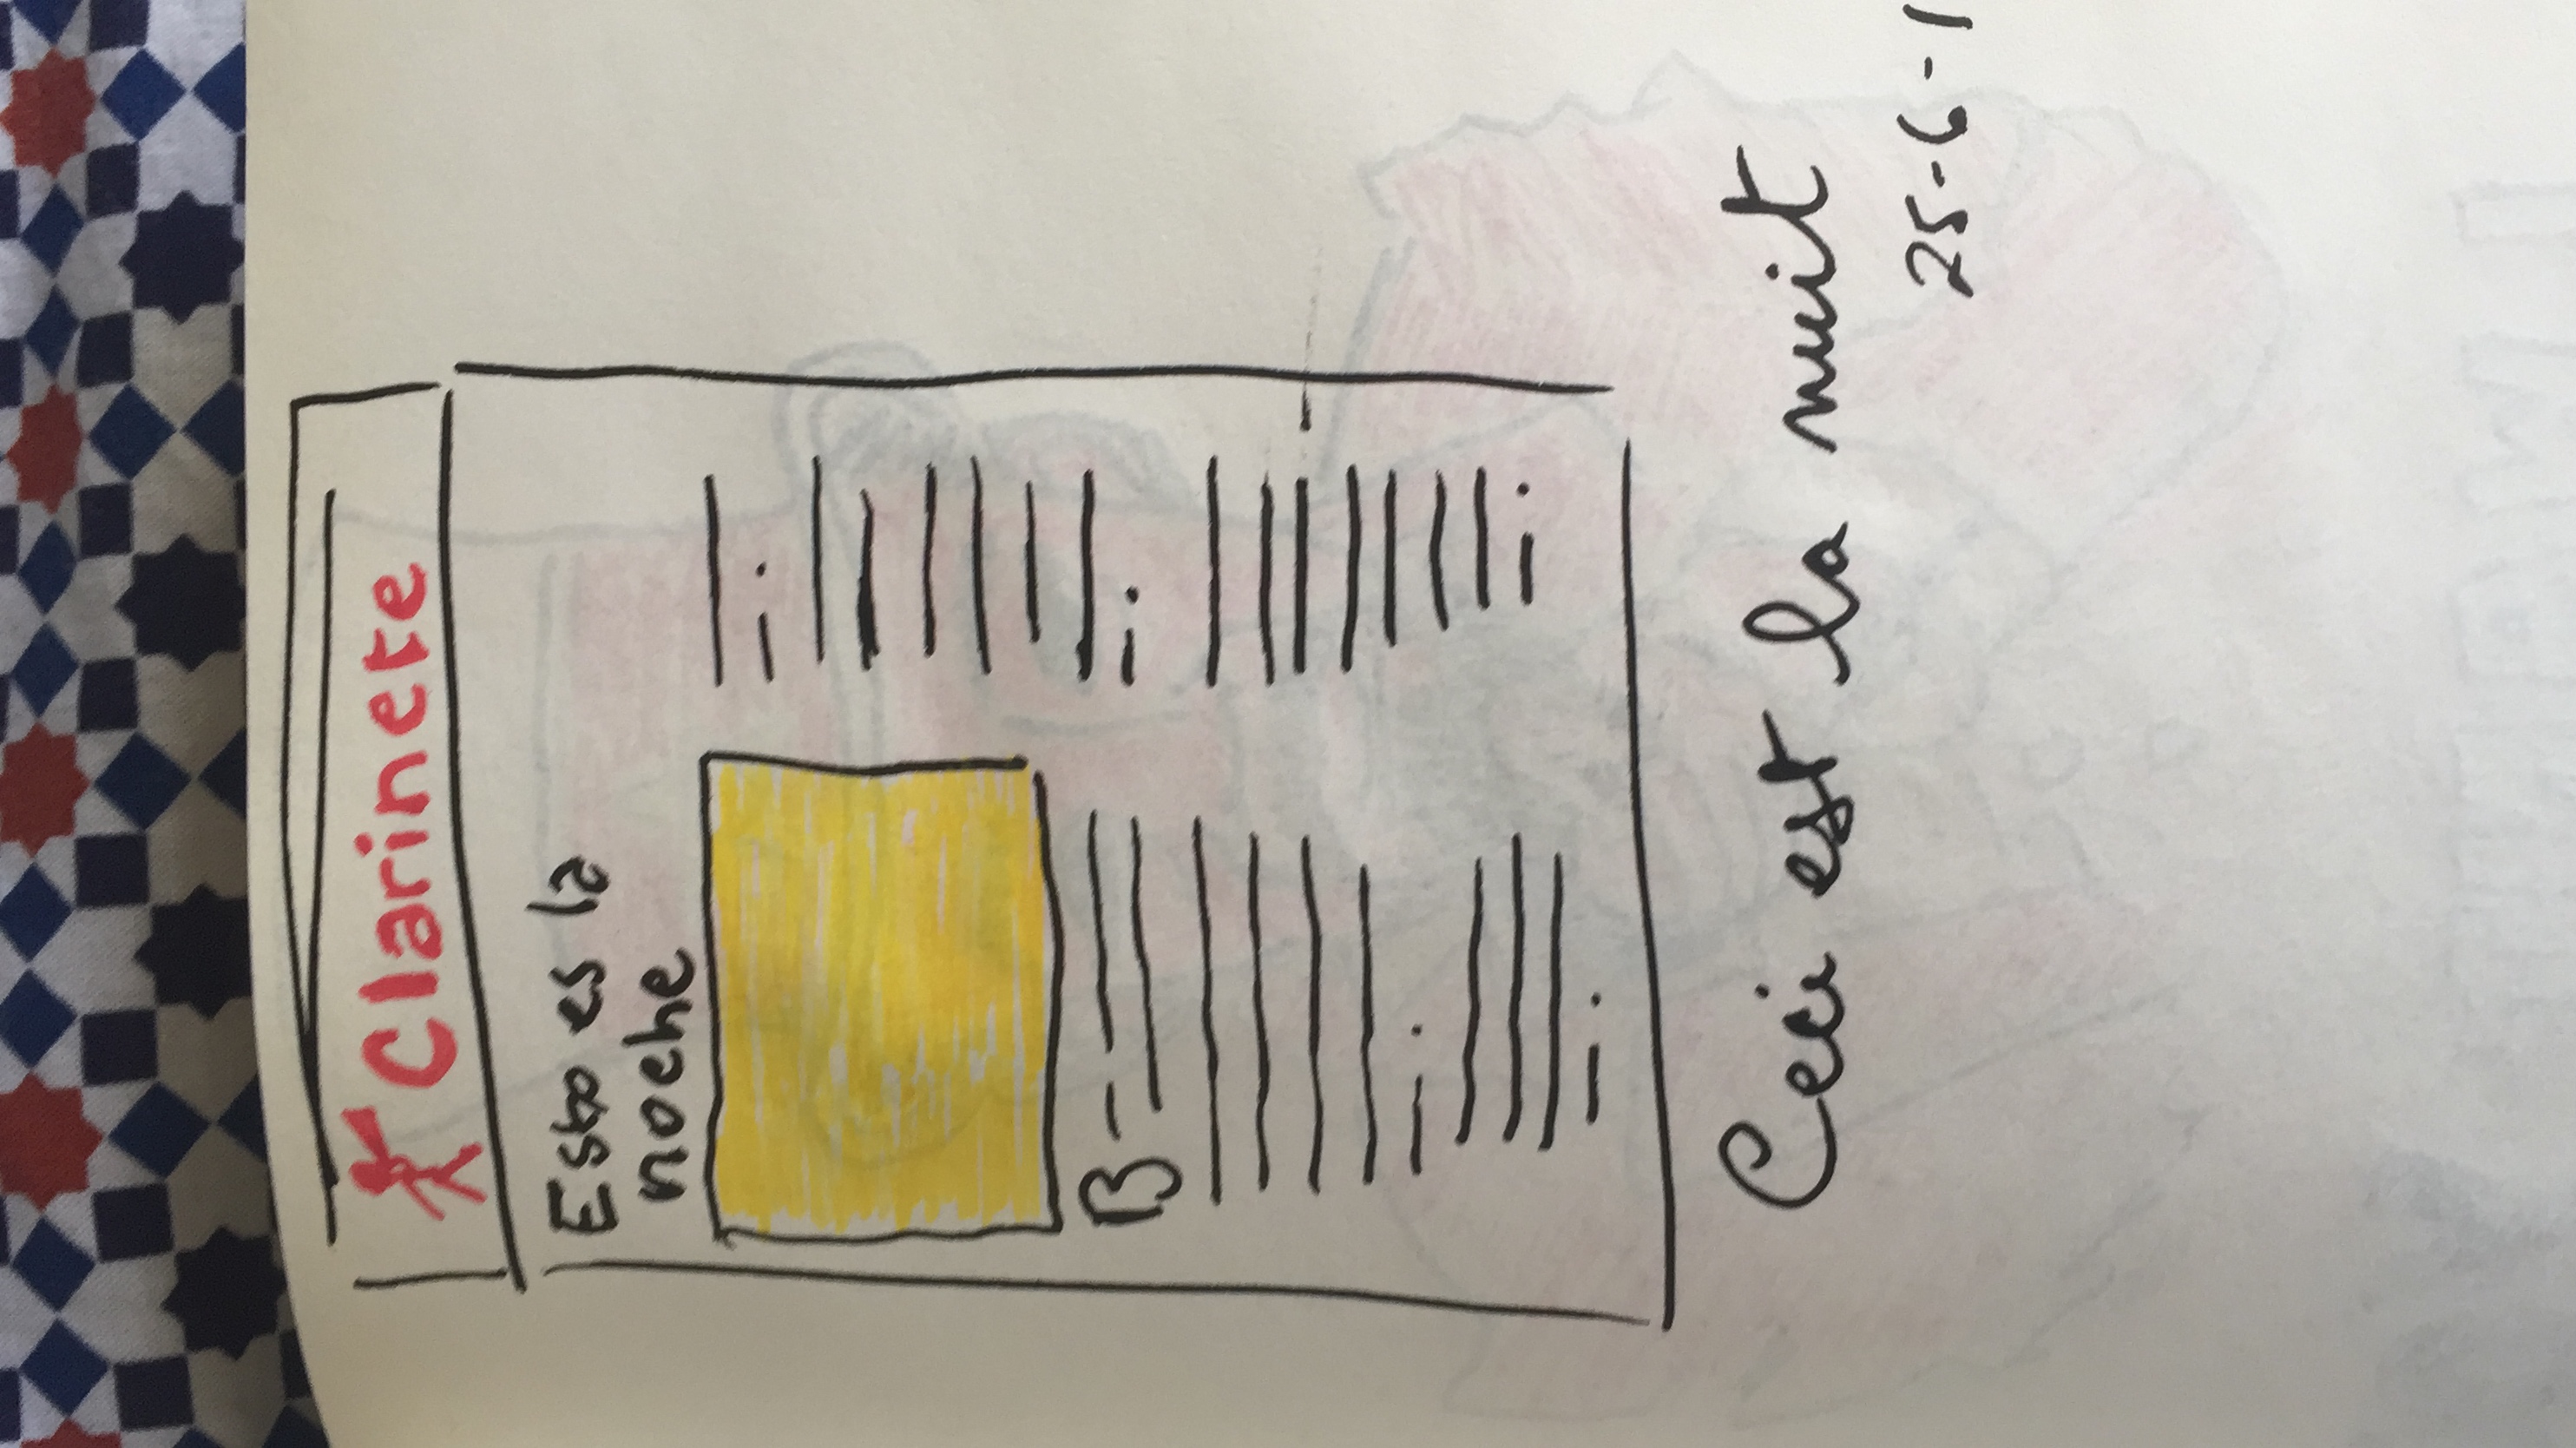 Clarinete
Esto es la
noche
B
Ceci est la nuit
25-6-1